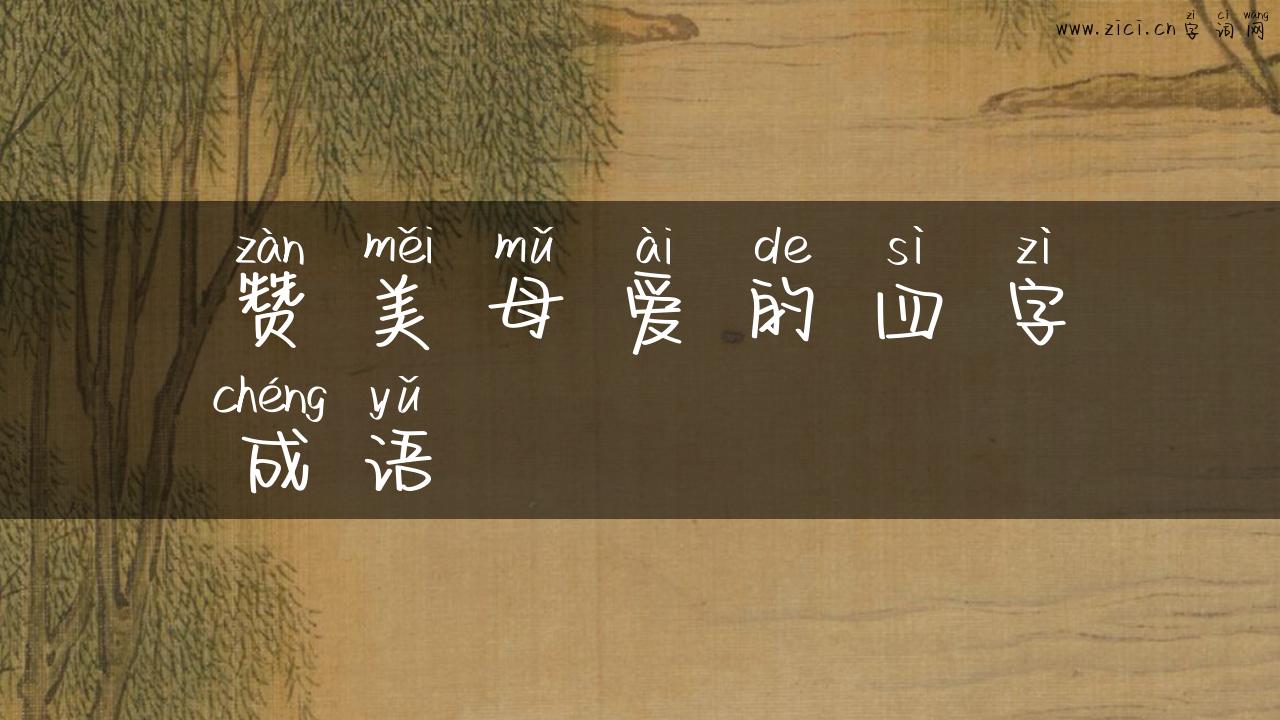 zì cí wǎng
www.zici.cn字词网
zàn měi mǔ ài de sì zì
赞美母爱的四字
chéng yǔ
成语